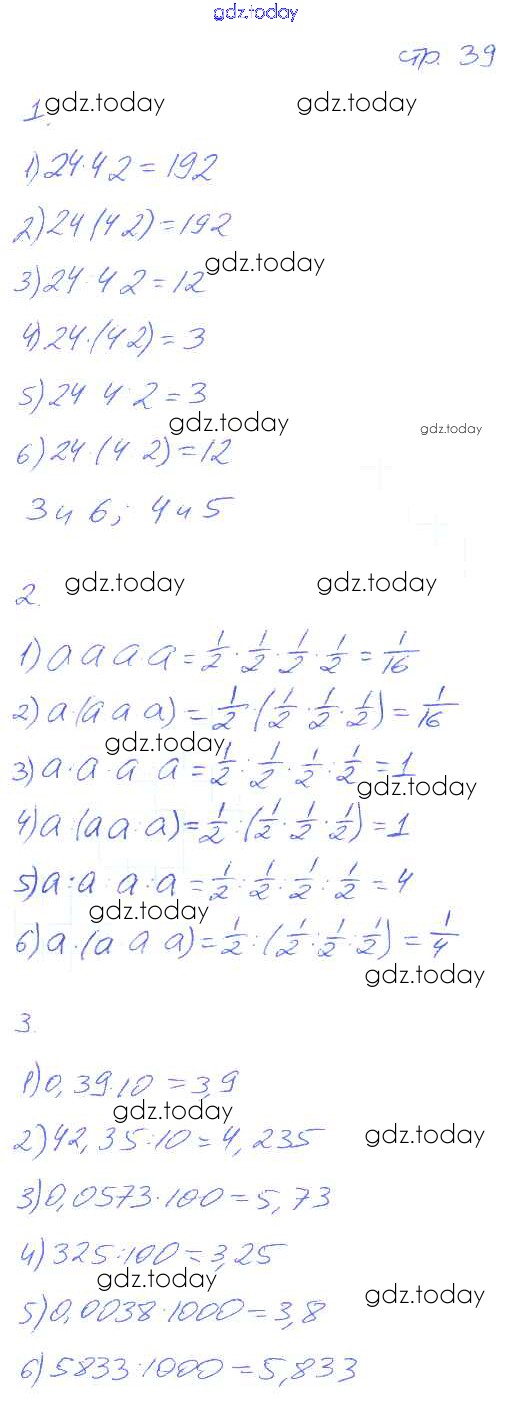 gdz.today
стр. 39
gdz.today gdz.today
1.
1) 24·4 2 = 192
2) 24 (4 2) = 192
gdz.today
3) 24 4 2 = 12
4) 24·(4 2) = 3
5) 24 4·2 = 3
gdz.today gdz.today
6) 24·(4 2) = 12
3 и 6; 4 и 5
gdz.today gdz.today
2.
1) a a a·a = 1/2 · 1/2 · 1/2 · 1/2 = 1/16
2) a·(a a a) = 1/2 · (1/2 · 1/2 · 1/2) = 1/16
gdz.today
3) a·a·a a = 1/2 : 1/2 · 1/2 : 1/2 = 1
gdz.today
4) a (a a·a) = 1/2 · (1/2 · 1/2 : 1/2) = 1
5) a:a a·a = 1/2 : 1/2 : 1/2 : 1/2 = 4
gdz.today
6) a·(a a a) = 1/2 : (1/2 : 1/2 · 1/2) = 1/4
gdz.today
3.
1) 0,39·10 = 3,9
gdz.today gdz.today
2) 42,35:10 = 4,235
3) 0,0573·100 = 5,73
4) 325:100 = 3,25
gdz.today gdz.today
5) 0,0038·1000 = 3,8
6) 5833:1000 = 5,833